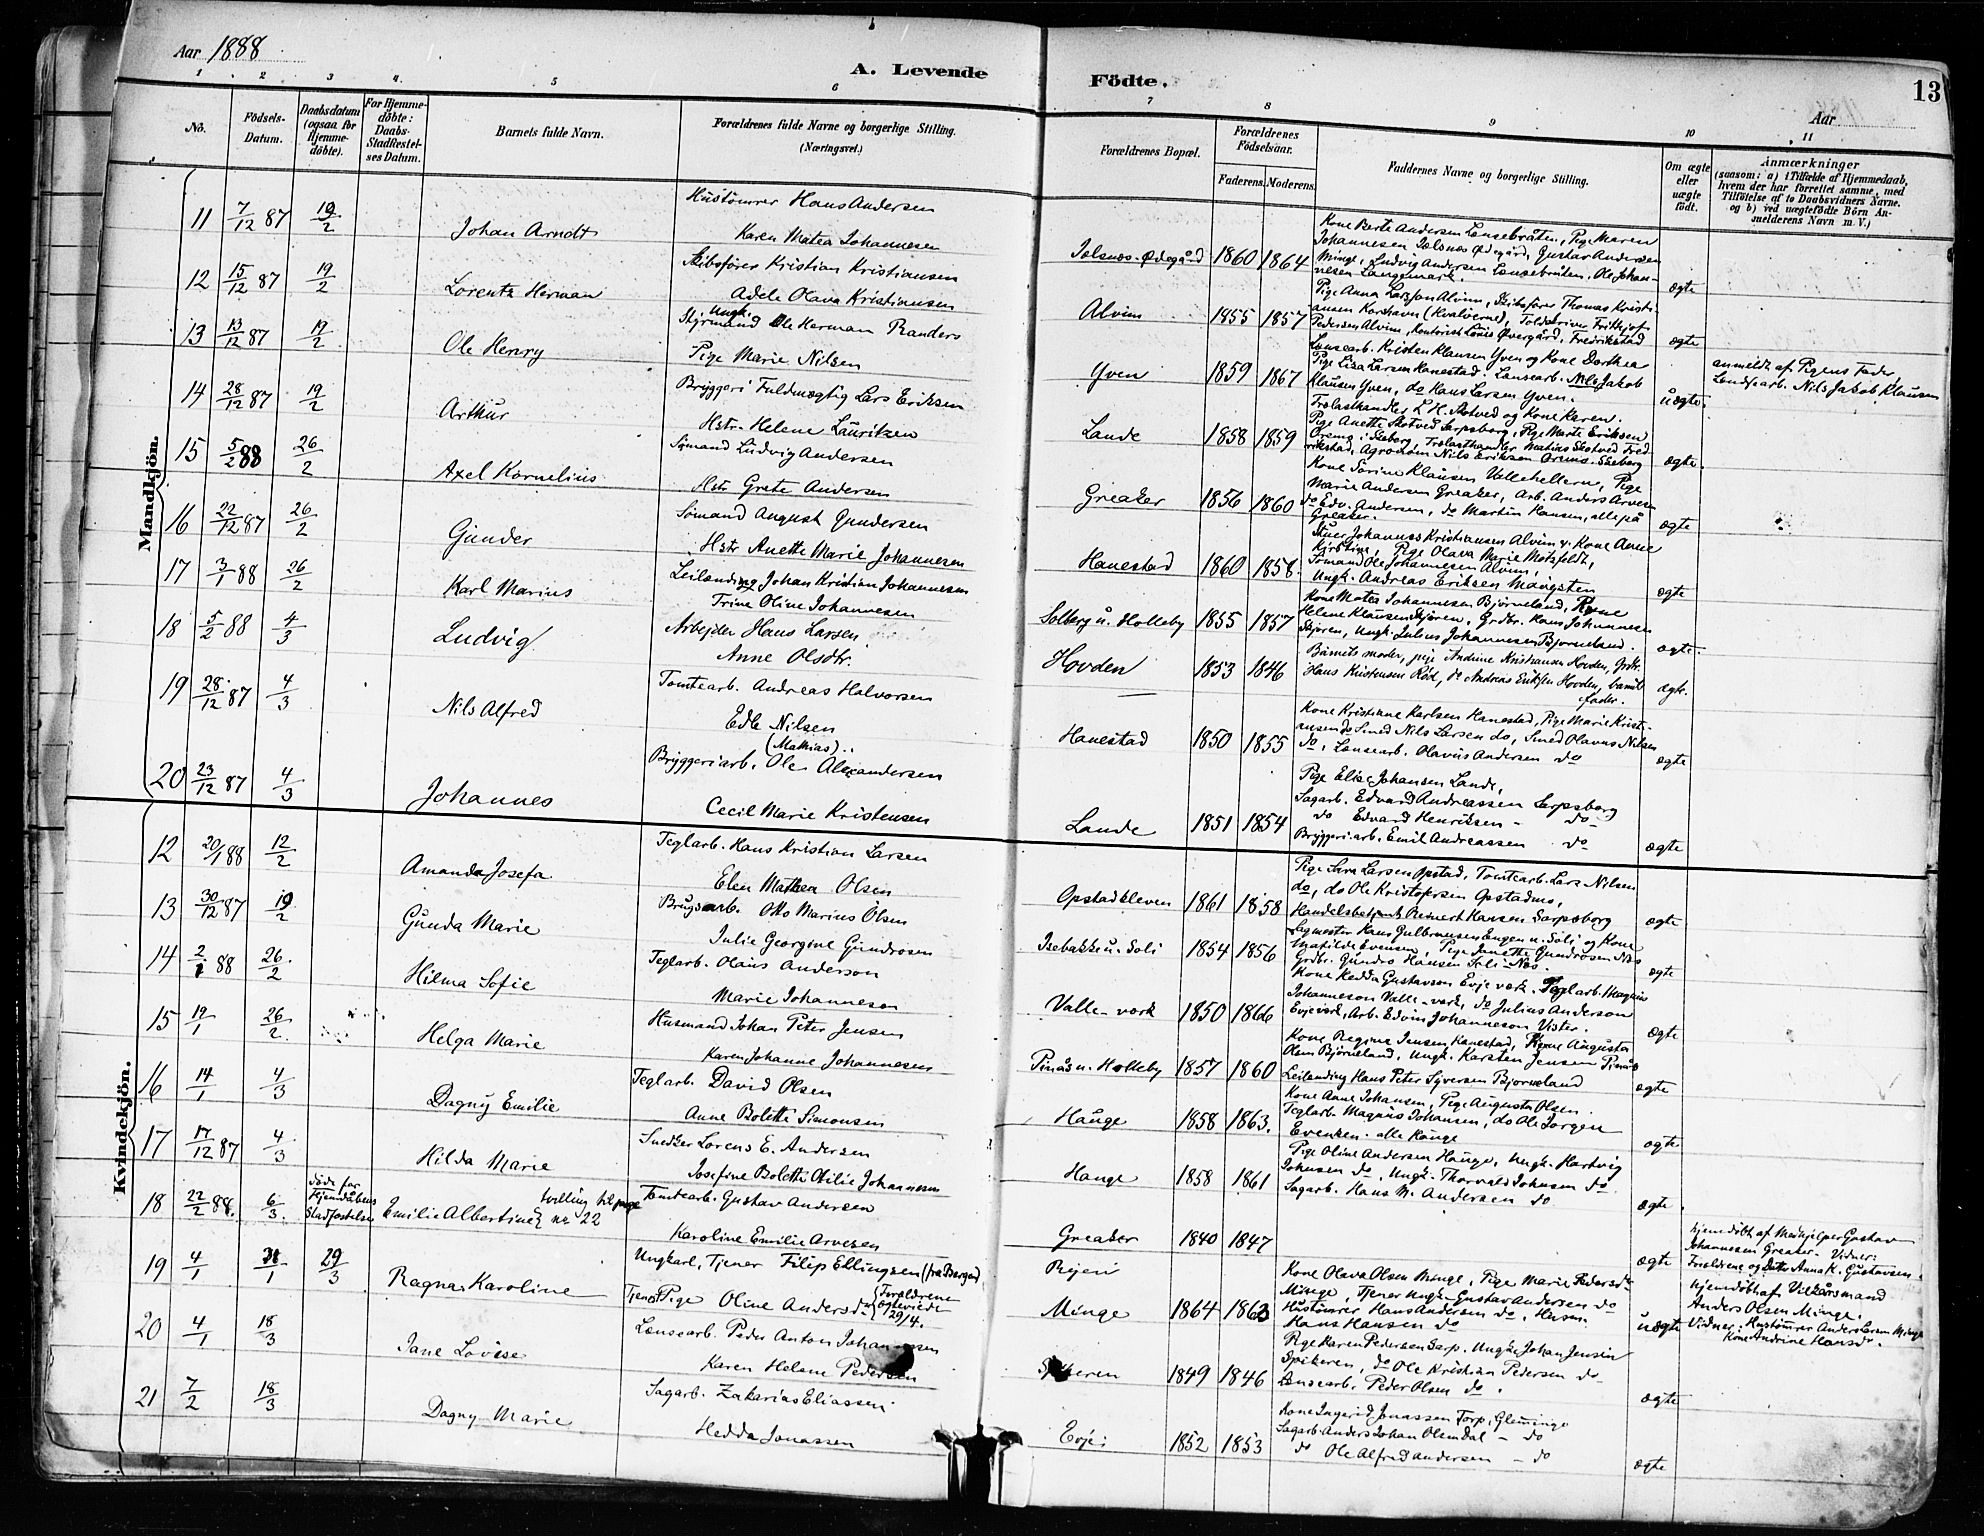 Aar 1888
A. Levende
Födte.
13
Aar
1 2 3 4. 5 6 7 8 9 10 11
No.
Födsels-Datum.
Daabsdatum (ogsaa for Hjemme-döbte).
For Hjemme-döbte: Daabs-Stadfæstel-ses Datum.
Barnets fulde Navn.
Forældrenes fulde Navne og borgerlige Stilling. (Næringsvei.)
Forældrenes Bopæl.
Forældrenes Födselsaar.
Faderens. Moderens.
Faddernes Navne og borgerlige Stilling.
Om ægte eller uægte födt.
Anmærkninger
(saasom: a) i Tilfælde af Hjemmedaab, hvem der har forrettet samme, med Tilföielse af to Daabsvidners Navne. og b) ved uægtefödte Börn An-melderens Navn m. V.)
Mandkjön.
11 7/12 87 19/2 Johan Arndt
Hustömrer Hans Andersen
Karen Matea Johannesen
Jelsnæs-Ødegård 1860 1864
Kone Berte Andersen Lensebråten, Pige Maren
Johannesen Jelsnæs Ødegård, Gustav Andersen
Minge, Ludvig Andersen Lensebråten, Ole Johan-
nesen Langemark.
ægte
12 15/12 87 19/2 Lorentz Herman
Skibsförer Kristian Kristiansen
Adele Olava Kristiansen
Alvim 1855 1857
Pige Anna Larsson Alvim, Skibsförer Thomas Kristi-
ansen Korshavn (Hvalöerne), Toldskriver Frithjof
Pedersen Alvim, Kontorist Louis Övergård, Fredrikstad
ægte
13 13/12 87 19/2 Ole Henry
Ungk. Styrmand Ole Herman Randers
Pige Marie Nilsen
Yven 1859 1867
Lensearb. Kristen Klausen Yven og Kone Dorthea
Pige Lisa Larsen Hanestad. Lensearb. Nils Jakob
Klausen Yven, do Hans Larsen Yven.
uægte.
anmeldt af Pigens Fader
Lensearb. Nils Jakob Klausen
14 28/12 87 19/2 Arthur
Bryggeri Fuldmægtig Lars Eriksen
Hstr. Helene Lauritzen
Lande 1858 1859
Trælasthandler L. H. Skotved og Kone Karen.
Pige Anette Skotved Sarpsborg, Pige Marte Eriksen
Öremo i Skeberg, Trælasthandler Matias Skotved Fred-
rikstad, Agronom Nils Eriksen Öremo, Skeberg
ægte.
15 5/2 88 26/2 Axel Kornelius
Sömand Ludvig Andersen
Hstr Grete Andersen
Greaker 1856 1860
Kone Sorine Klausen Vallehellern, Pige
Marie Andersen Greaker, Arb. Anders Arvesen
do Edv. Andersen, do Martin Hansen, alle på
Greaker.
ægte
16 22/12 87 26/2 Gunder
Sömand August Gundersen
Hstr Anette Marie Johannesen
Hanestad 1860 1858.
Stuer Johannes Kristiansen Alvim & Kone Anne
Kirstine, Pige Olava Marie Motzfeldt,
Sömand Ole Johannesen Alvim,
Ungk. Andreas Eriksen Mångsten
ægte
17 3/1 88 26/2 Karl Marius
Leilænding Johan Kristian Johannesen
Trine Oline Johannesen
Solberg u. Holleby 1855 1857
Kone Matea Johannesen Björneland, Kone
Helene Klausen Skjören, Grdbr. Hans Johannesen
Skjören, Ungk. Julius Johannesen Björneland.
ægte.
18 5/2 88 4/3 Ludvig
Arbejder Hans Larsen
Anne Olsdtr.
Hovden 1853 1846
Barnets moder, pige Andrine Kristiansen Hovden, Grdbr.
Hans Kristensen Röd, do Andreas Eriksen Hovden, barnets
fader.
ægte.
19 28/12 87 4/3 Nils Alfred
Tomtearb. Andreas Halvorsen
Edle Nilsen
Hanestad 1850 1855
Kone Kristiane Karlsen Hanestad, Pige Marie Kristi-
ansen do Smed Nils Larsen do, Smed Olavus Nilsen
do, Lensearb. Olavus Andersen do
ægte
20 23/12 87 4/3 Johannes
(Mathias)
Bryggeriarb. Ole Alexandersen
Cecil Marie Kristensen
Lande 1851 1854
Pige Elise Johansen Lande,
Sagarb. Edvard Andreassen Sarpsborg
do Edvard Henriksen - do
Bryggeriarb. Emil Andreassen do
ægte
Kvindekjön.
12 20/1 88 12/2 Amanda Josefa
Teglarb. Hans Kristian Larsen
Elen Mathea Olsen
Opstadkleven 1861 1858
Pige Sara Larsen Opstad, Tomtearb. Lars Nilsen
do, do Ole Kristofersen Opstadmo,
Handelsbetjent Reinert Hansen Sarpsborg
ægte
13 30/12 87 19/2 Gunda Marie
Brugsarb. Otto Marius Olsen
Julie Georgine Gundrosen
Isebakke u. Soli 1854 1856
Lægmester Hans Gulbransen Engen u. Soli og Kone
Mathilde Evensen, Pige Janette Gundrosen Næs
Grdbr. Gundro Hansen Soli-Næs.
ægte
14 2/1 88 26/2 Hilma Sofie
Teglarb. Olaus Anderson
Marie Johanneson
Valle-værk 1850 1866
Kone Hedda Gustavson Evje værk. Teglarb. Magnus
Johanneson Valle-værk, do Julius Anderson
Evjeværk, Arb. Edvin Johanneson Vister.
ægte
15 19/1 26/2 Helga Marie
Husmand Johan Peter Jensen
Karen Johanne Johannesen
Pinås u. Holleby 1857 1860
Kone Regine Jensen Hanestad, Kone Augusta
Olsen Björneland, Ungk. Karsten Jensen Pinås
Leilænding Hans Peter Syversen Björneland
ægte
16 14/1 4/3 Dagny Emilie
Teglarb. David Olsen
Anne Bolette Simonsen
Hauge 1858 1863.
Kone Anne Johansen, Pige Augusta Olsen.
Teglarb. Magnus Johansen, do Ole Jorgen
Evensen. alle Hauge
ægte
17 17/12 87 4/3 Hilda Marie
Snedker Lorens E. Andersen
Josefine Bolette Otilie Johannesen
Hauge 1858 1861
Pige Oline Andersen Hauge, Ungk. Hartvig
Johnsen do, Ungk. Thorvald Johnsen do
Sagarb. Hans M. Andersen do
ægte.
18 22/2 88. 6/3. döde för Hjemdåbens Stadfæstelse Emilie Albertine } tvilling til pige nr 22
Tomtearb. Gustav Andersen
Karoline Emilie Arvesen
Greaker 1840 1847
ægte
hjemdöbt af Medhjelper Gustav
Johannesen Greaker. Vidner:
Forældrene og Datter Anna K. Gustavsen.
19 4/1 31/1 29/3 Ragna Karoline
Ungkarl, Tjener Filip Ellingsen (fra Bergen)
Tjenest Pige Oline Andersdtr. {Forældrene ægteviede 29/4.
Rejeri
Minge 1864 1863
Kone Olava Olsen Minge, Pige Marie Pedersdtr.
Minge, Tjener Ungk. Gustav Andersen do
Hustömrer Hans Andersen do, Husm.
Hans Hansen do
uægte
hjemdöbt af Vilkårsmand
Anders Olsen Minge.
Vidner: Hustömrer Anders Larsen Minge
Kone Andrine Hansdr.
20 4/1 18/3 Jane Lovise
Lensearb. Peder Anton Johannesen
Karen Helene Pedersen
1849 1846
Pige Karen Pedersen Sarp. Ungk. Johan Jensen
Spikeren, do Ole Kristian Pedersen do
Lensearb. Peder Olsen do.
ægte
21 7/2 18/3 Dagny Marie
Sagarb. Zakarias Eliassen
Hedda Jonassen
Evje 1852 1853
Kone Ingerid Jonassen Torp, Glemminge
Sagarb. Anders Johan Olsen Dal - do
do Ole Alfred Andersen - do
ægte